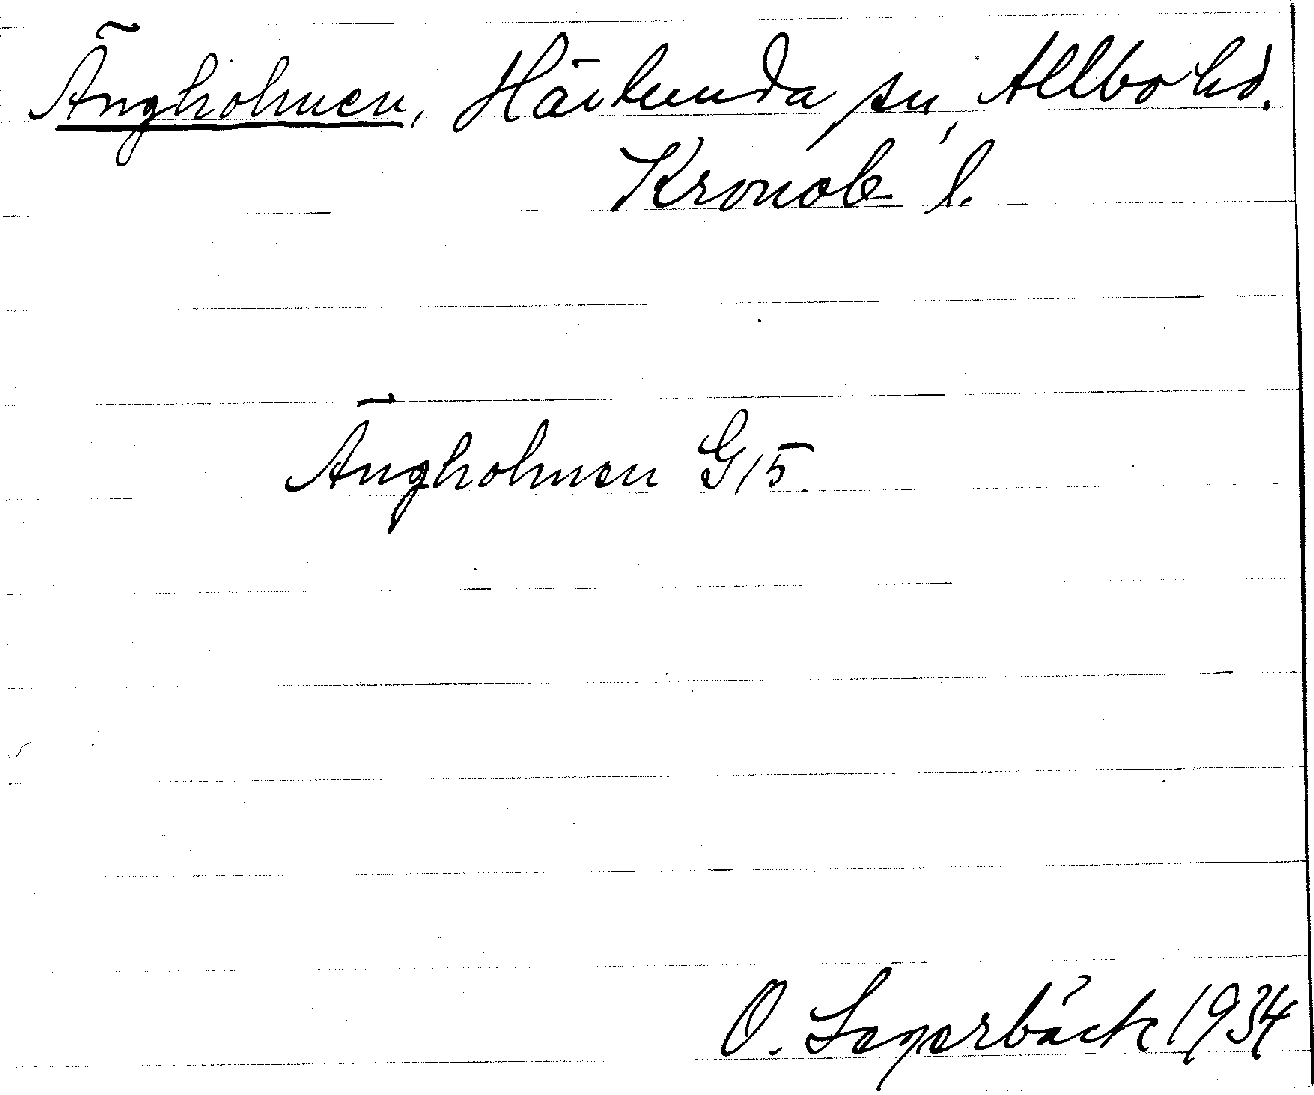 Ängholmen, Härlunda sn, Allbo hd.
Kronob l.
Ängholmen G15.
O. Lagerbäck 1934